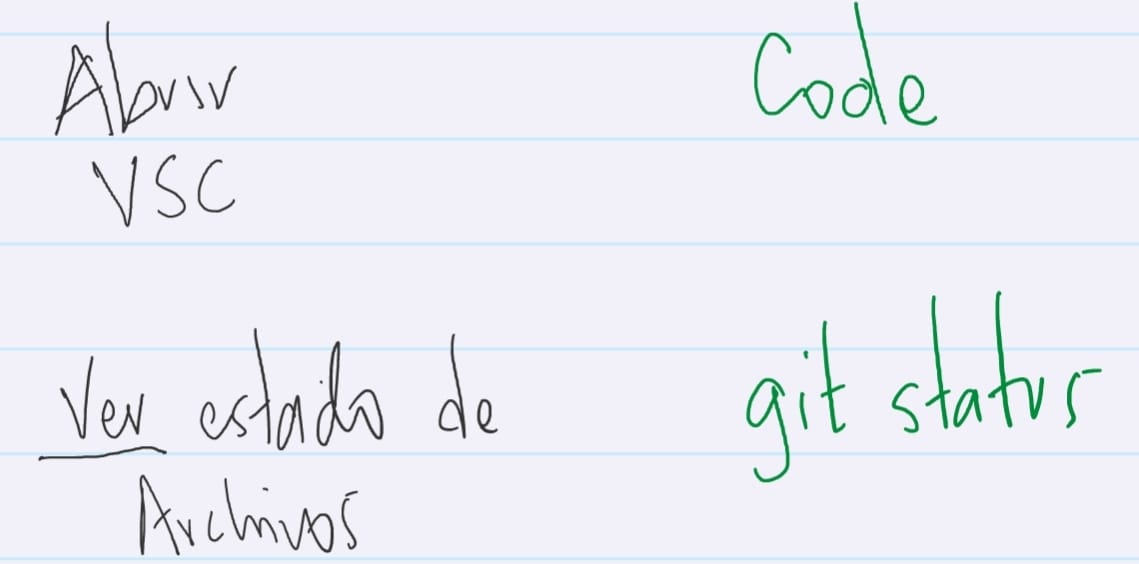 Abrir
VSC
Code
Ver estado de
Archivos
git status